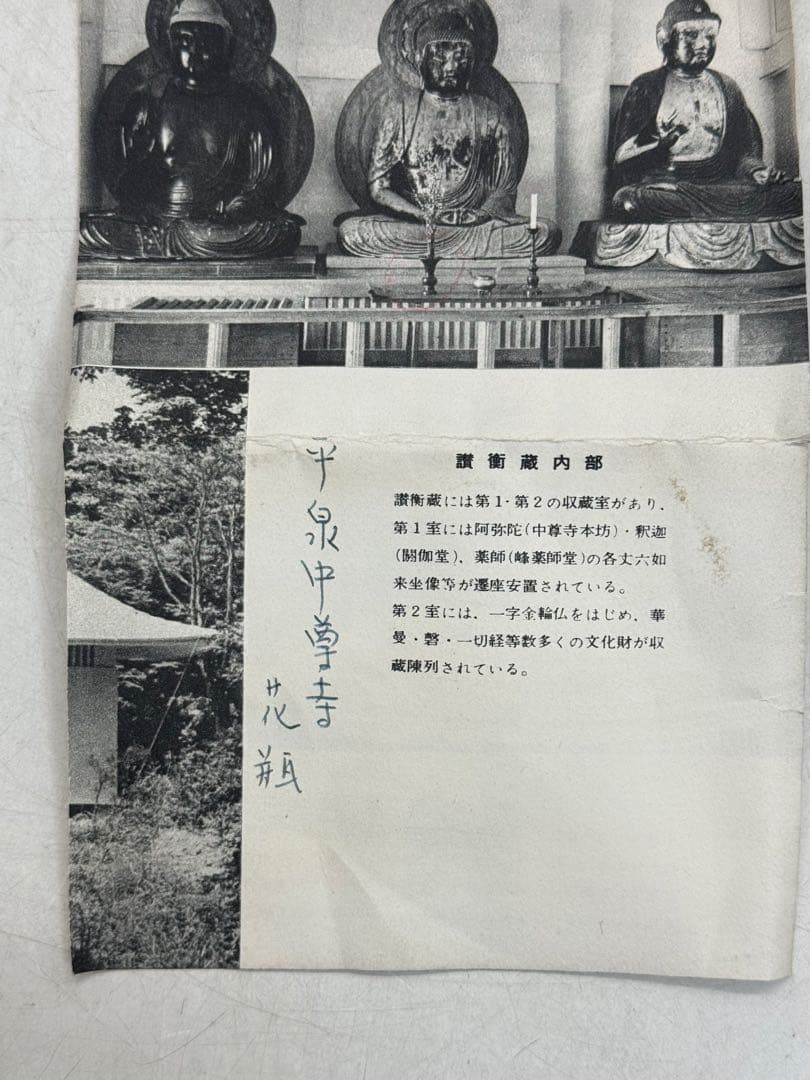 讃衡蔵内部
讃衡蔵には第1・第2の収蔵室があり、
第1室には阿弥陀(中尊寺本坊)・釈迦
(閼伽堂)、薬師(峰薬師堂)の各丈六如
来坐像等が遷座安置されている。
第2室には、一字金輪仏をはじめ、華
曼・磬・一切経等数多くの文化財が収
蔵陳列されている。
平泉中尊寺
花瓶